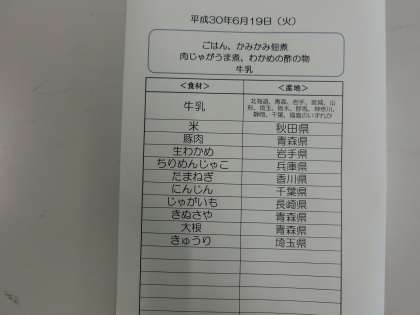 平成30年6月19日（火）
ごはん、かみかみ佃煮
肉じゃがうま煮、わかめの酢の物
牛乳
＜食材＞ ＜産地＞
牛乳 北海道、青森、岩手、宮城、山
形、埼玉、栃木、群馬、神奈川、
静岡、千葉、福島のいずれか
米 秋田県
豚肉 青森県
生わかめ 岩手県
ちりめんじゃこ 兵庫県
たまねぎ 香川県
にんじん 千葉県
じゃがいも 長崎県
きぬさや 青森県
大根 青森県
きゅうり 埼玉県